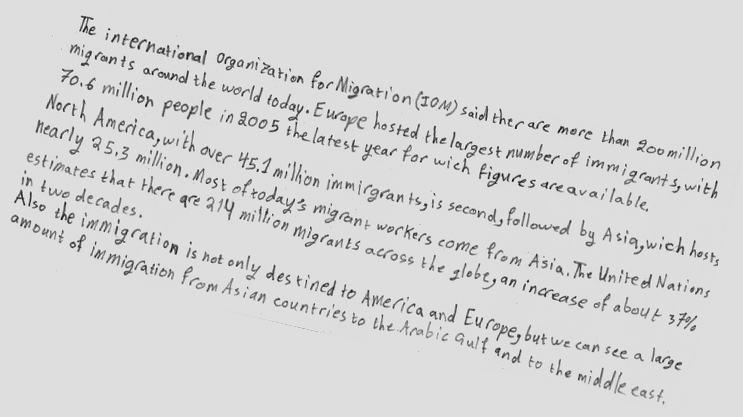 The international Organization for Migration (IOM) said ther are more than 200 million
migrants around the world today. Europe hosted the largest number of immigrants, with
70.6 million people in 2005 the latest year for wich figures are available.
North America, with over 45,1 million immirgrants, is second, followed by Asia, wich hosts
nearly 25,3 million. Most of today's migrant workers come from Asia. The United Nations
estimates that there are 214 million migrants across the globe, an increase of about 37%
in two decades.
Also the immigration is not only destined to America and Europe, but we can see a large
amount of immigration from Asian countries to the Arabic Gulf and to the middle east.